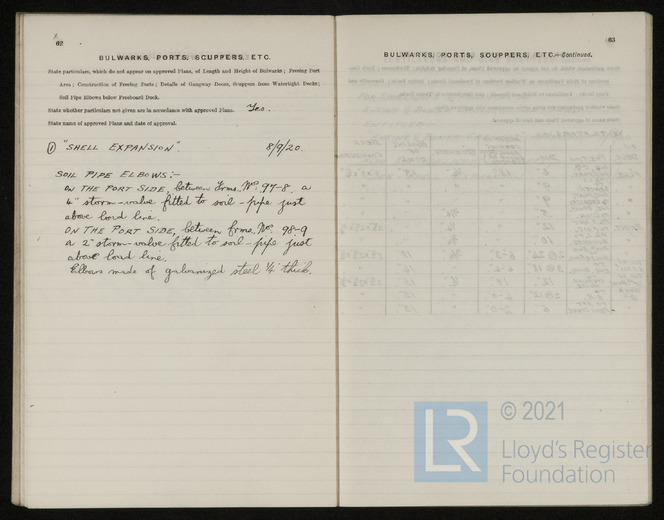 62
BULWARKS, PORTS, SCUPPERS, ETC.
State particulars, which do not appear on approved Plans, of Length and Height of Bulwarks; Freeing Port
Area; Construction of Freeing Ports; Details of Gangway Doors, Scuppers from Watertight Decks;
Soil Pipe Elbows below Freeboard Deck.
State whether particulars not given are in accordance with approved Plans. Yes.
State name of approved Plans and date of approval.
① "SHELL EXPANSION". 8/9/20.
SOIL PIPE ELBOWS:-
ON THE PORT SIDE, between frms. Nos. 97-8, a
4" storm-valve fitted to soil-pipe just
above load line.
ON THE PORT SIDE, between frms. Nos. 98-9
a 2" storm-valve fitted to soil-pipe just
above load line.
Elbows made of galvanized steel ¼" thick.
63
BULWARKS, PORTS, SCUPPERS, ETC.—Continued.
LR
© 2021
Lloyd's Register
Foundation